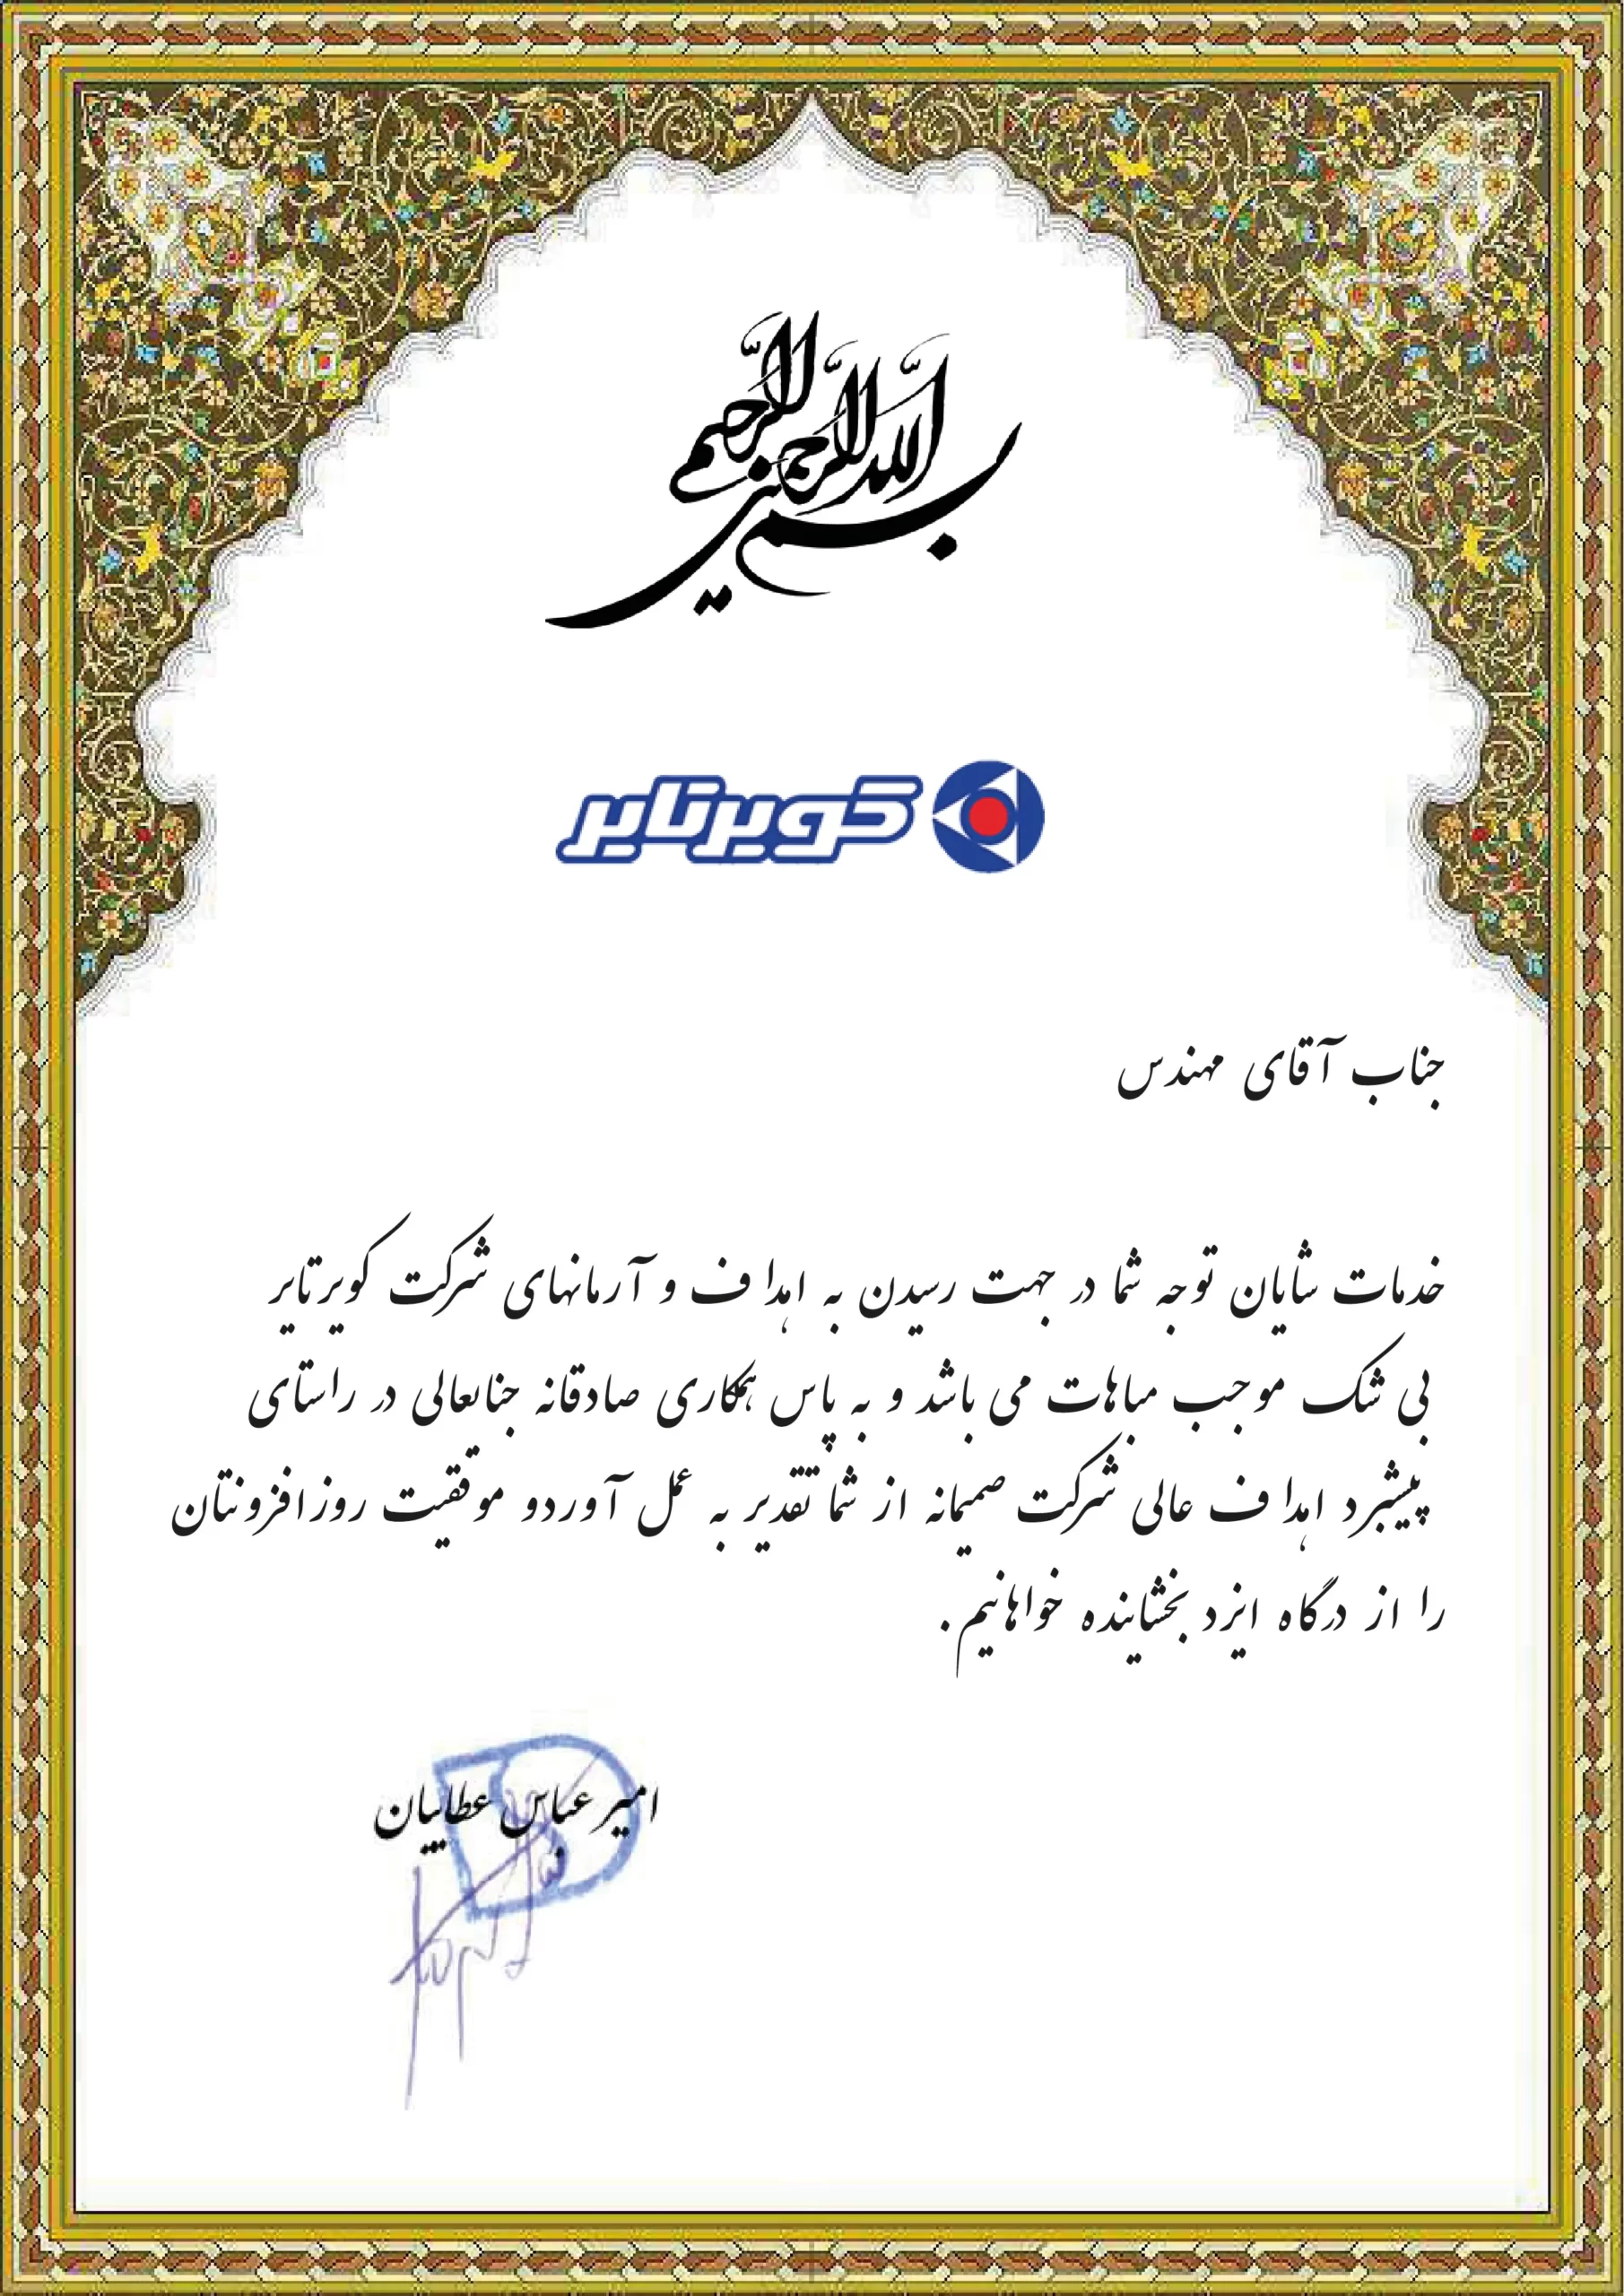 بسم الله الرحمن الرحیم
کویرتایر
جناب آقای مهندس
خدمات شایان توجه شما در جهت رسیدن به اهداف و آرمانهای شرکت کویرتایر
بی شک موجب مباهات می باشد و به پاس همکاری صادقانه جنابعالی در راستای
پیشبرد اهداف عالی شرکت صمیمانه از شما تقدیر به عمل آوردو موفقیت روزافزونتان
را از درگاه ایزد بخشاینده خواهانیم.
امیر عباس عطاییان